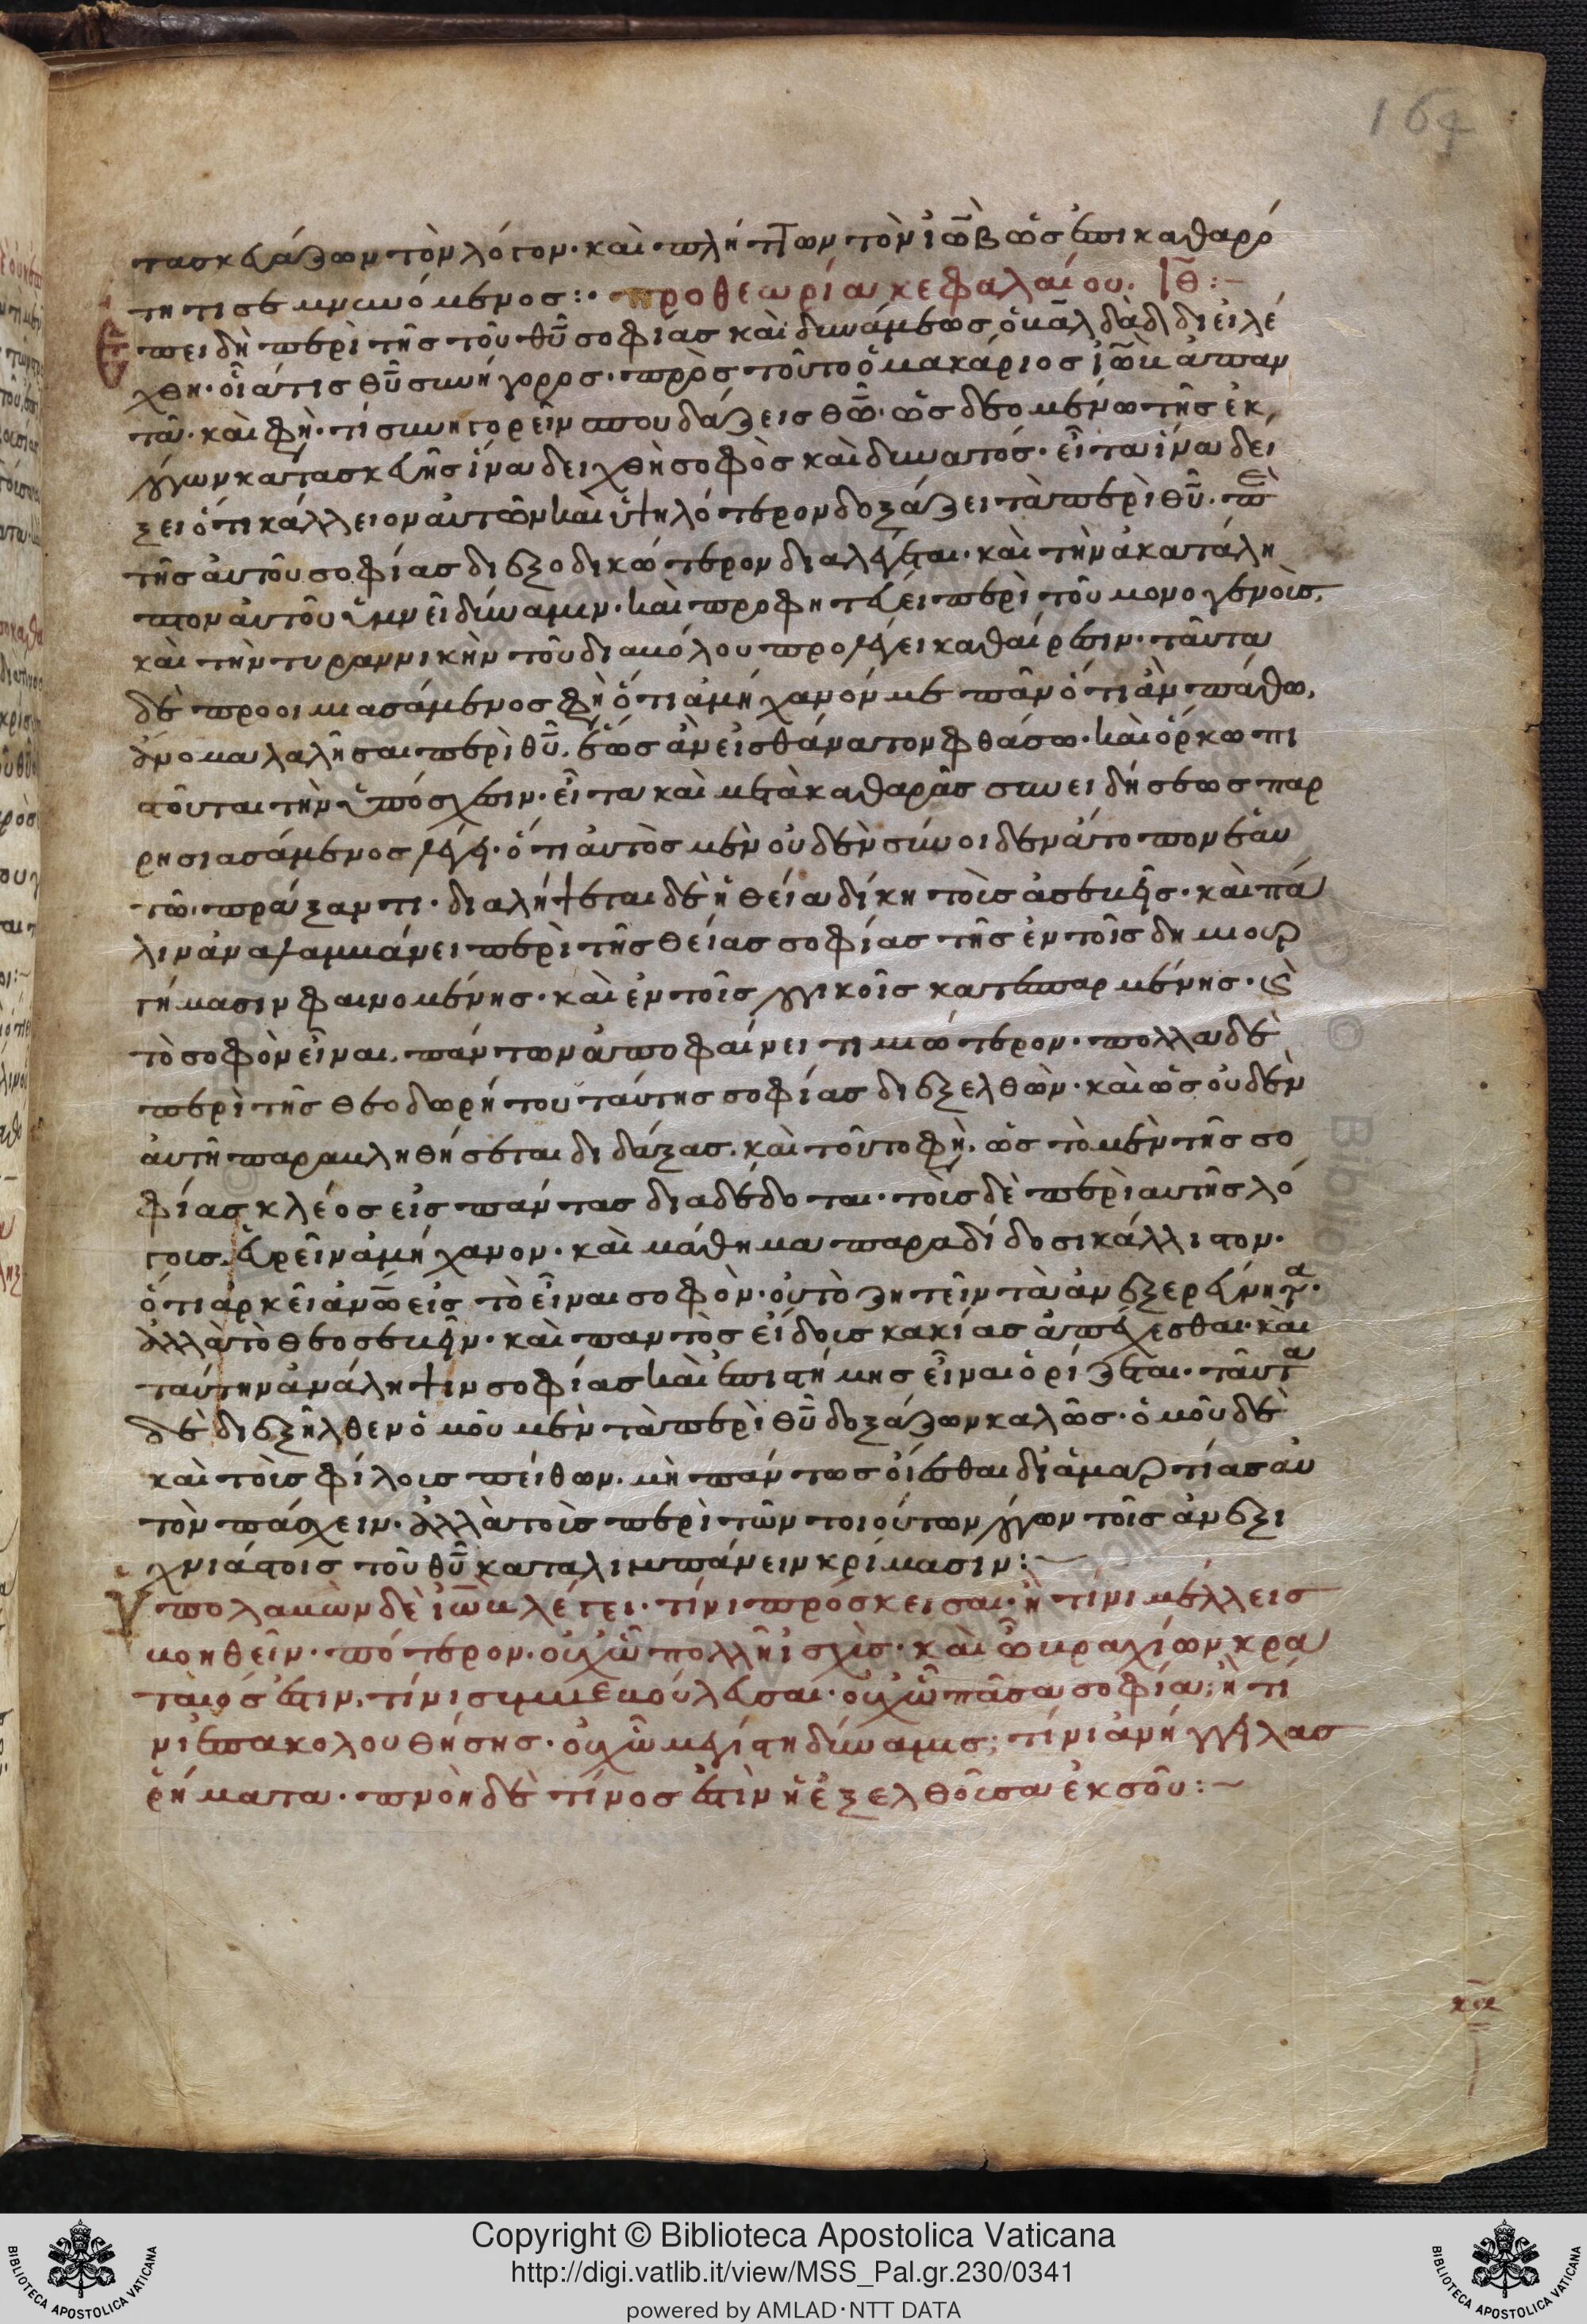 164
τασκευάζων τὸν λόγον· καὶ πλήττων τὸν ἰὼβ ὡς ἐπὶ καθαρό
τητι σεμνυνόμενος:· προθεωρία κεφαλαίου· ιθ:–
Επειδὴ περὶ τῆς τοῦ θῦ σοφίας καὶ δυνάμεως ὁ βαλδὰδ διειλέ
χθη· οἷά τις θῦ συνήγορος· πρὸς τοῦτο ὁ μακάριος ἰὼβ ἀπαν
τᾶ· καὶ φη· τί συνηγορεῖν σπουδάζεις θῶ· ὡς δεομένω τῆς ἐκ
λόγων κατασκευῆς ἵνα δειχθῆ σοφὸς καὶ δυνατός· εἶτα ἵνα δεί
ξει ὅτι κάλλειον αὐτῶν καὶ ὑψηλότερον δοξάζει τὰ περὶ θῦ· περὶ
τῆς αὐτοῦ σοφίας διεξοδικώτερον διαλέγεται· καὶ τὴν ἀκατάλη
πτον αὐτοῦ ὑμνεῖ δύναμιν· καὶ προφητεύει περὶ τοῦ μονογενοῦς·
καὶ τὴν τυραννικὴν τοῦ διαβόλου προλέγει καθαίρεσιν· ταῦτα
δὲ προοιμιασάμενος φη ὅτι ἀμήχανόν με πᾶν ὅτι ἂν πάθω,
λαλῆσαι περὶ θῦ· ἕως ἂν εἰς θάνατον φθάσω· καὶ ὅρκω πι
στοῦται τὴν ὑπόσχεσιν· εἶτα καὶ μετὰ καθαρᾶς συνειδήσεως παρ
ρησιασάμενος λέγει· ὅτι αὐτὸς μὲν οὐδὲν σύνοιδεν ἄτοπον ἑαυ
τῶ πράξαντι· διαλήψεται δὲ ἡ θεία δίκη τοὺς ἀσεβεῖς· καὶ πά
λιν ἀναλαμβάνει περὶ τῆς θείας σοφίας τῆς ἐν τοῖς δημιουρ
γήμασιν φαινομένης· καὶ ἐν τοῖς λογικοῖς κατεσπαρμένης· καὶ
τὸ σοφὸν εἶναι, πάντων ἀποφαίνει τιμιώτερον· πολλὰ δὲ
περὶ τῆς θεοδωρήτου ταύτης σοφίας διεξελθὼν· καὶ ὡς οὐδὲν
αὐτῆ παραβληθήσεται διδάξας· καὶ τοῦτο φη· ὡς τὸ μὲν τῆς σο
φίας κλέος εἰς πάντας διαδέδοται· τοὺς δὲ περὶ αὐτῆς λό
γους, εὑρεῖν ἀμήχανον· καὶ μάθημα παραδίδοσι κάλλιστον·
ὅτι ἀρκεῖ ἀνω εἰς τὸ εἶναι σοφὸν· οὐ τὸ ζητεῖν τὰ ἀνεξερεύνητα·
ἀλλὰ τὸ θεοσεβεῖν· καὶ παντὸς εἴδους κακίας ἀπέχεσθαι· καὶ
ταύτην ἀνάληψιν σοφίας καὶ ἐπιστήμης εἶναι ὁρίζεται· ταῦτα
δὲ διεξῆλθεν ὁμοῦ μὲν τὰ περὶ θῦ δοξάζων καλῶς· ὁμοῦ δὲ
καὶ τοὺς φίλους πείθων· μὴ πάντως οἴεσθαι δι ἁμαρτίας αὐ
τὸν πάσχειν· ἀλλὰ τοὺς περὶ τῶν τοιούτων λόγων τοῖς ἀνεξι
χνιάστοις τοῦ θῦ καταλιμπάνειν κρίμασιν:–
Υπολαβὼν δὲ ἰὼβ λέγει· τίνι πρόσκεισαι· ἢ τίνι μέλλεις
βοηθεῖν· πότερον· οὐχ ὧ πολλὴ ἰσχὺς· καὶ ὧ βραχίων κρα
ταιός ἐστιν, τίνι συμβεβούλευσαι· οὐχ ὧ πᾶσα σοφία; ἢ τί
νι ἐπακολουθήσης· οὐχ ὧ μεγίστη δύναμις; τίνι ἀνήγγειλας
ῥήματα· πνοὴ δὲ τίνος ἐστὶν ἡ ἐξελθοῦσα ἐκ σοῦ:–
κα
Copyright © Biblioteca Apostolica Vaticana
http://digi.vatlib.it/view/MSS_Pal.gr.230/0341
powered by AMLAD·NTT DATA
BIBLIOTECA APOSTOLICA VATICANA
BIBLIOTECA APOSTOLICA VATICANA